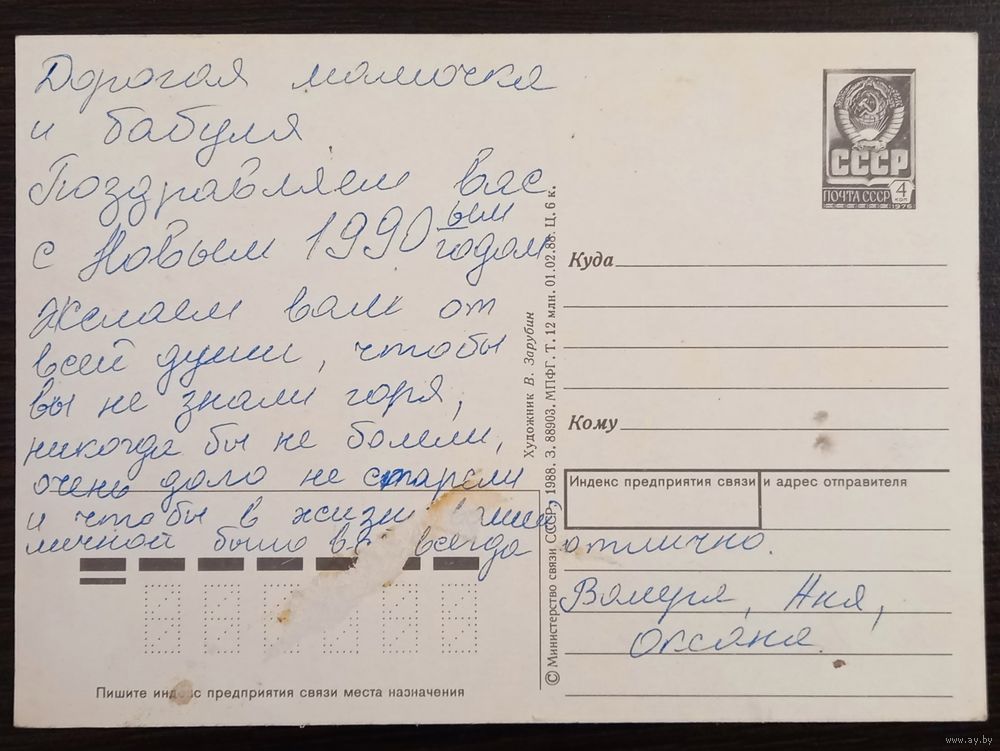 Дорогая мамочка
и бабуля
Поздравляем вас
с Новым 1990ым годом
Желаем вам от
всей души, чтобы
вы не знали горя,
никогда бы не болели,
очень долго не старели
и чтобы в жизни
личной было всегда отлично.
Валера, Аня,
Оксана.
СССР
ПОЧТА СССР 4 коп
1976
Куда
Кому
Индекс предприятия связи и адрес отправителя
Художник В. Зарубин
© Министерство связи СССР, 1988. З. 88903. МПФГ. Т. 12 млн. 01.02.88. Ц. 6 к.
Пишите индекс предприятия связи места назначения
www.ay.by